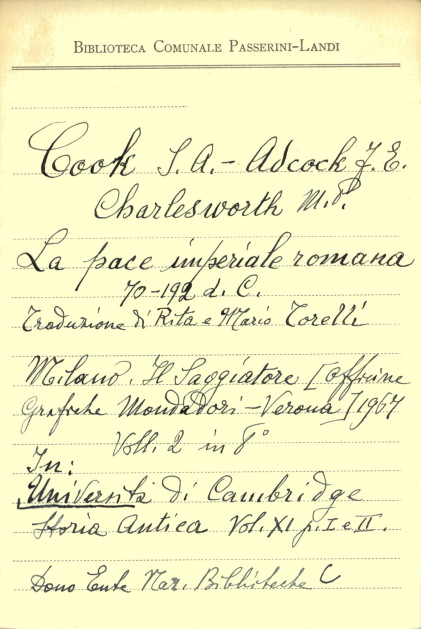 BIBLIOTECA COMUNALE PASSERINI-LANDI
Cook S. A. - Adcock F. E.
Charlesworth M. P.
La pace imperiale romana
70-192 d. C.
Traduzione di Rita e Mario Torelli
Milano. Il Saggiatore [Officine
Grafiche Mondadori - Verona] 1967
Voll. 2 in 8°
In:
Università di Cambridge
Storia Antica Vol. XI p. I e II.
Dono Ente Naz. Biblioteche